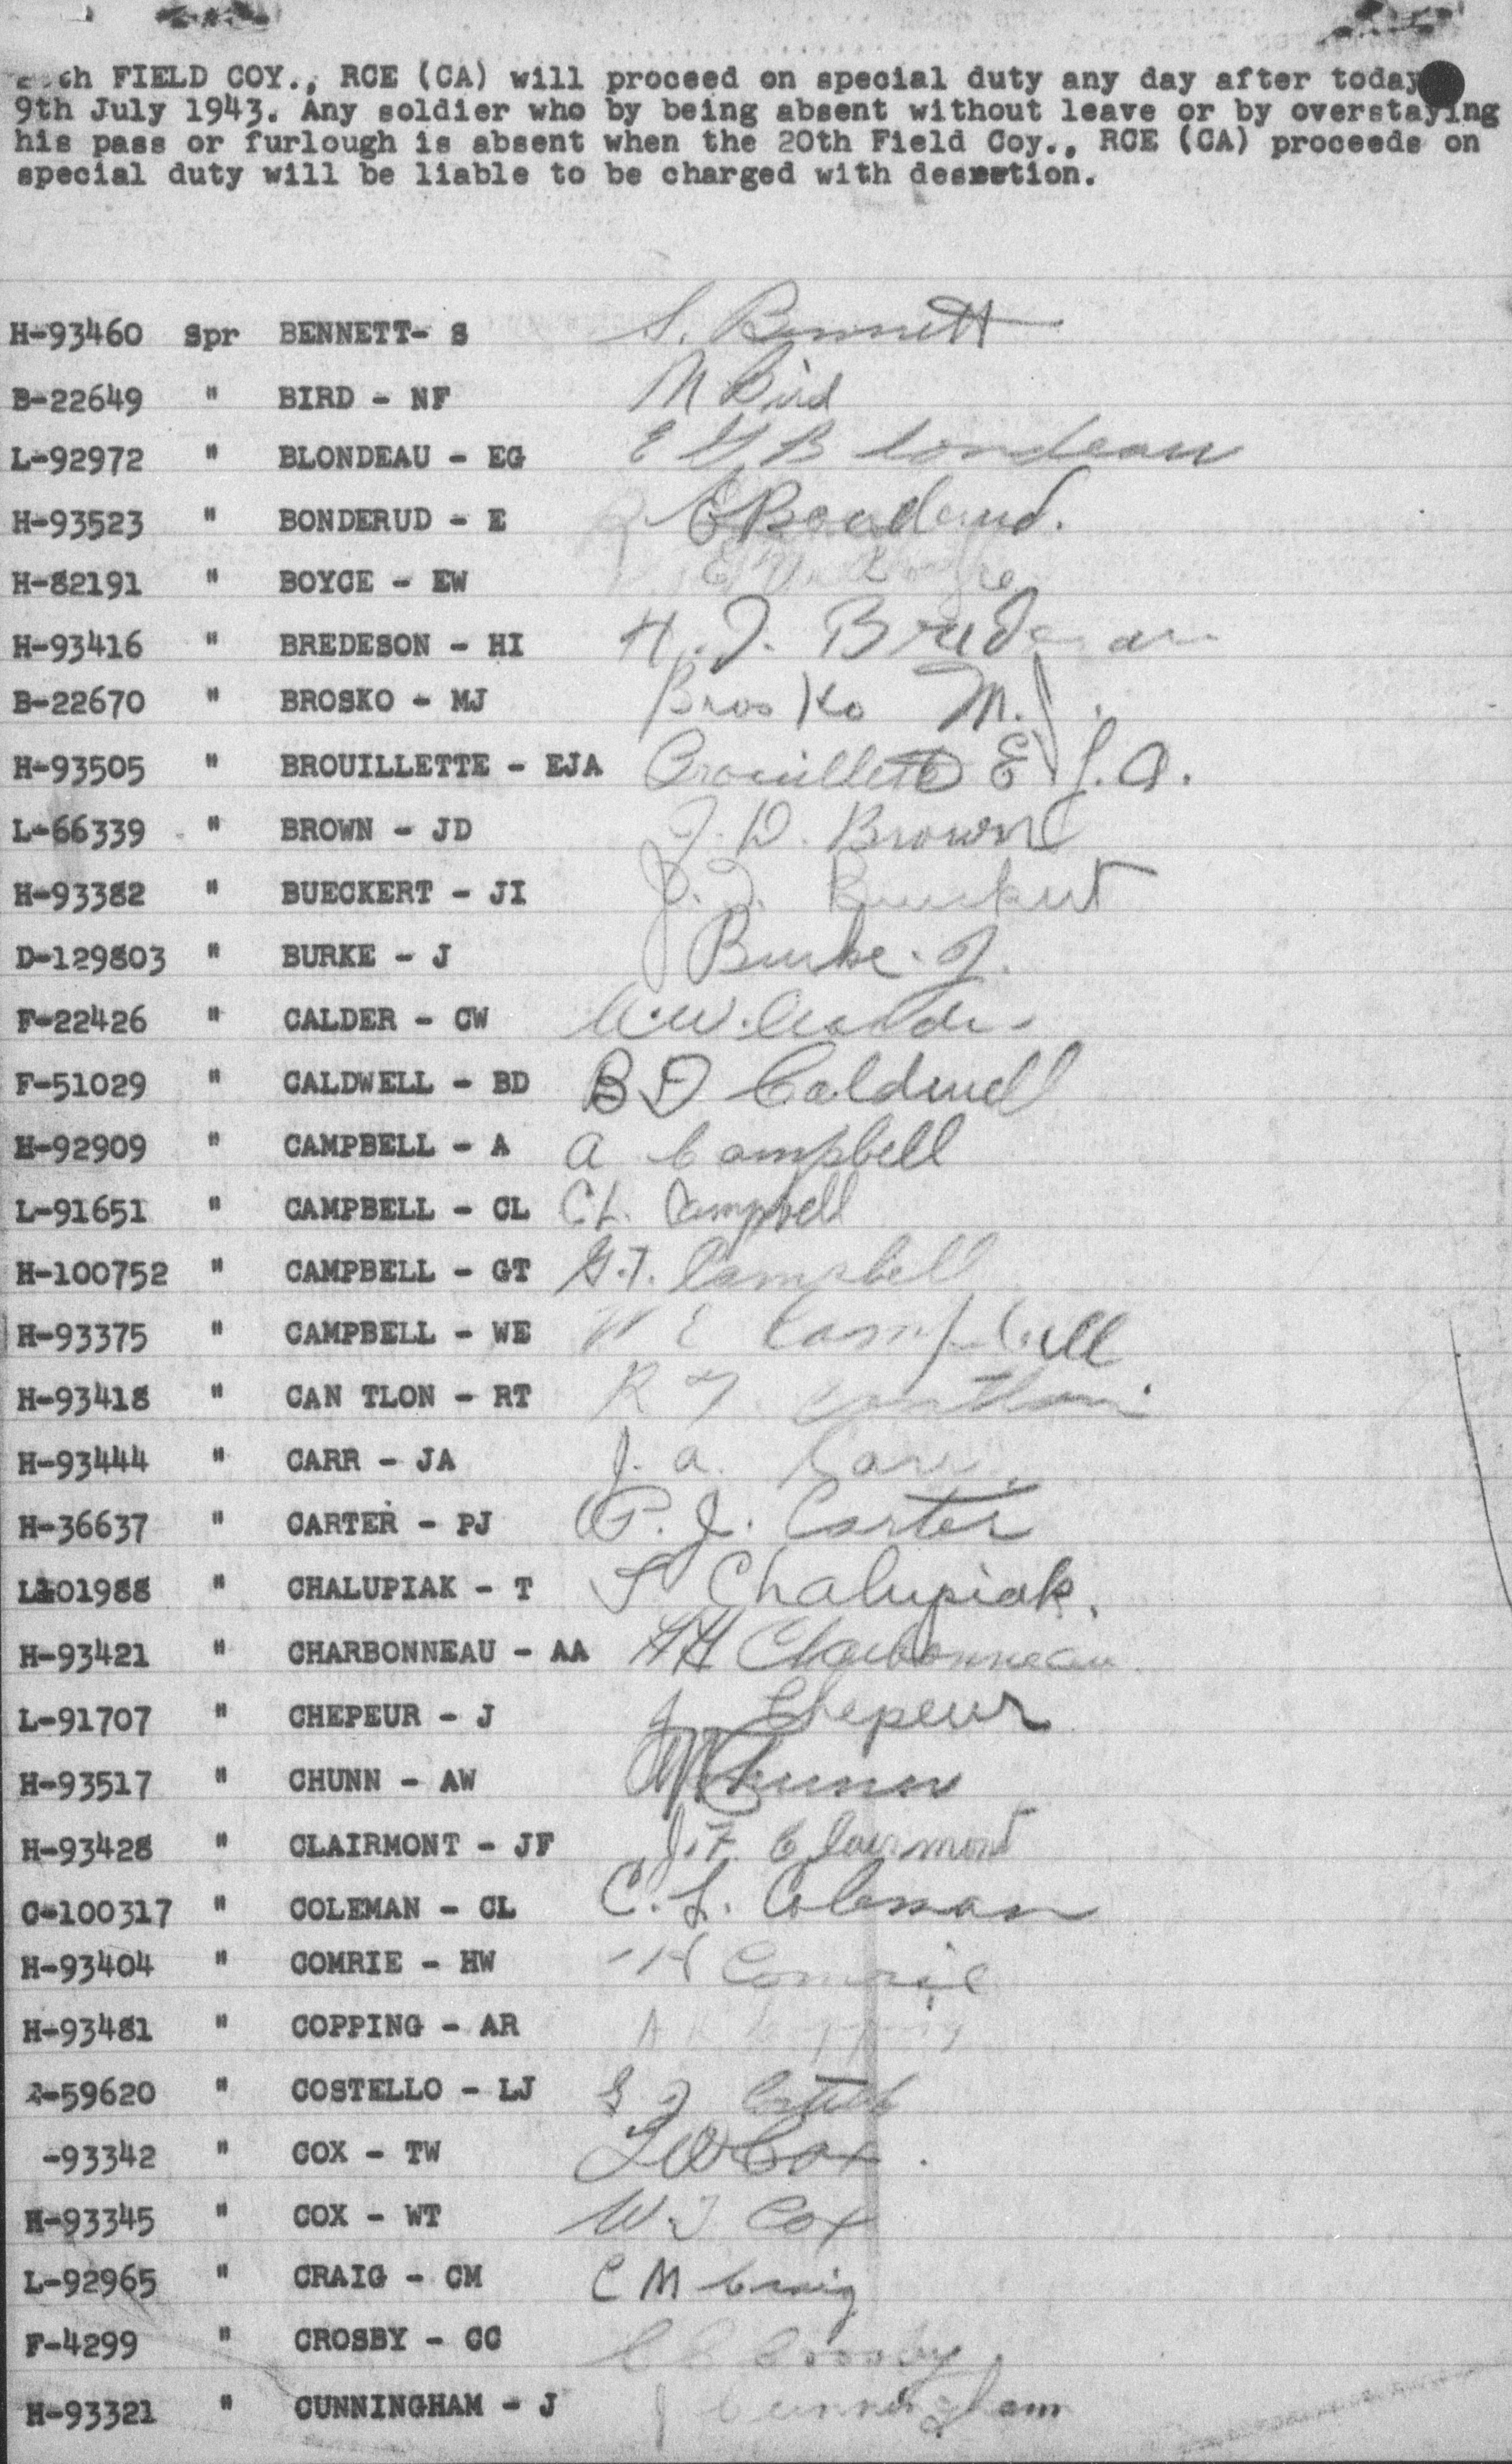 FIELD COY., RCE (CA) will proceed on special duty any day after today
9th July 1943. Any soldier who by being absent without leave or by overstaying
his pass or furlough is absent when the 20th Field Coy., RCE (CA) proceeds on
special duty will be liable to be charged with
H-93460 Spr BENNETT- S S. Bennett
B-22649 " BIRD - NF N Bird
L-92972 " BLONDEAU - EG E G Blondeau
H-93523 " BONDERUD - E E Bonderud.
H-82191 " BOYCE - EW
H-93416 " BREDESON - HI H. I. Bredeson
B-22670 " BROSKO - MJ Brosko M.J.
H-93505 " BROUILLETTE - EJA Brouillette E J. A.
L-66339 " BROWN - JD J. D. Brown
H-93382 " BUECKERT - JI J. I. Bueckert
D-129803 " BURKE - J Burke. J.
F-22426 " CALDER - CW C.W. Calder
F-51029 " CALDWELL - BD B D Caldwell
H-92909 " CAMPBELL - A A Campbell
L-91651 " CAMPBELL - CL C L. Campbell
H-100752 " CAMPBELL - GT G.T. Campbell
H-93375 " CAMPBELL - WE W E Campbell
H-93418 " CAN TLON - RT R T Cantlon
H-93444 " CARR - JA J. A. Carr.
H-36637 " CARTER - PJ P. J. Carter
L101988 " CHALUPIAK - T T Chalupiak.
H-93421 " CHARBONNEAU - AA AA Charbonneau
L-91707 " CHEPEUR - J J Chepeur
H-93517 " CHUNN - AW AW Chunn
H-93428 " CLAIRMONT - JF J.F. Clairmont
C-100317 " COLEMAN - CL C. L. Coleman
H-93404 " COMRIE - HW H Comrie
H-93481 " COPPING - AR A R Copping
-59620 " COSTELLO - LJ L J Costello
-93342 " COX - TW T W Cox.
H-93345 " COX - WT W T Cox
L-92965 " CRAIG - CM C M Craig
F-4299 " CROSBY - CC C C Crosby
H-93321 " CUNNINGHAM - J J Cunningham